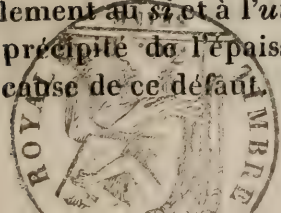 lement au si et à l'u
précipité de l'épais
cause de ce défaut.
ROYA
TIMBRE